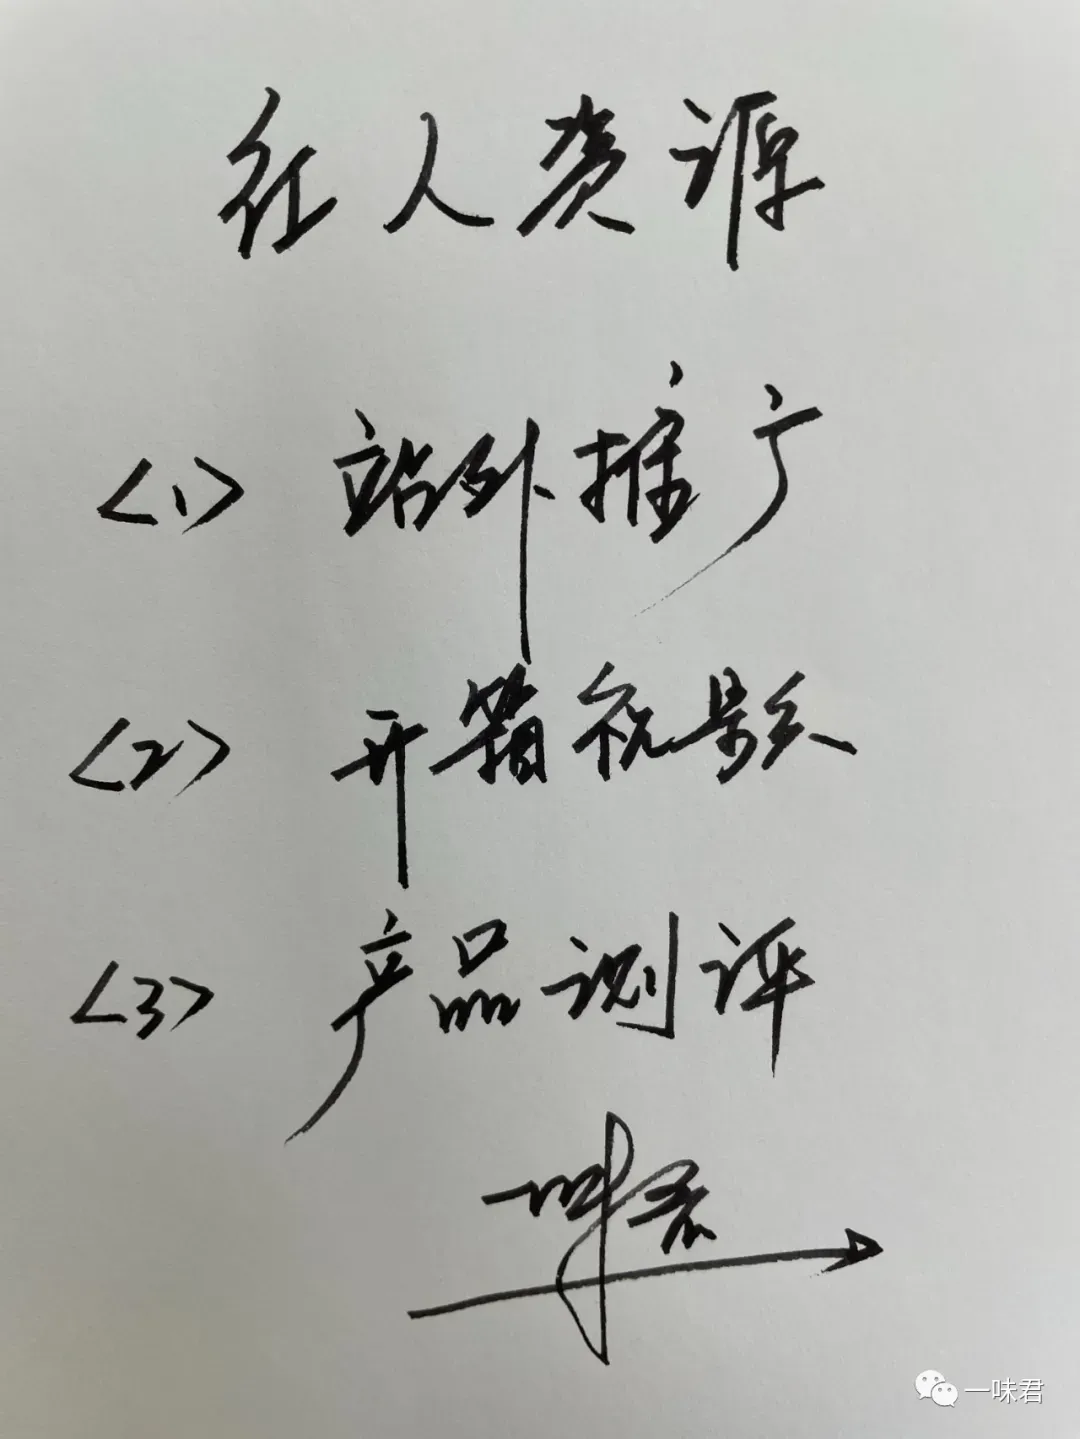 红人资源
<1> 站外推广
<2> 开箱视频
<3> 产品测评
一味君
一味君